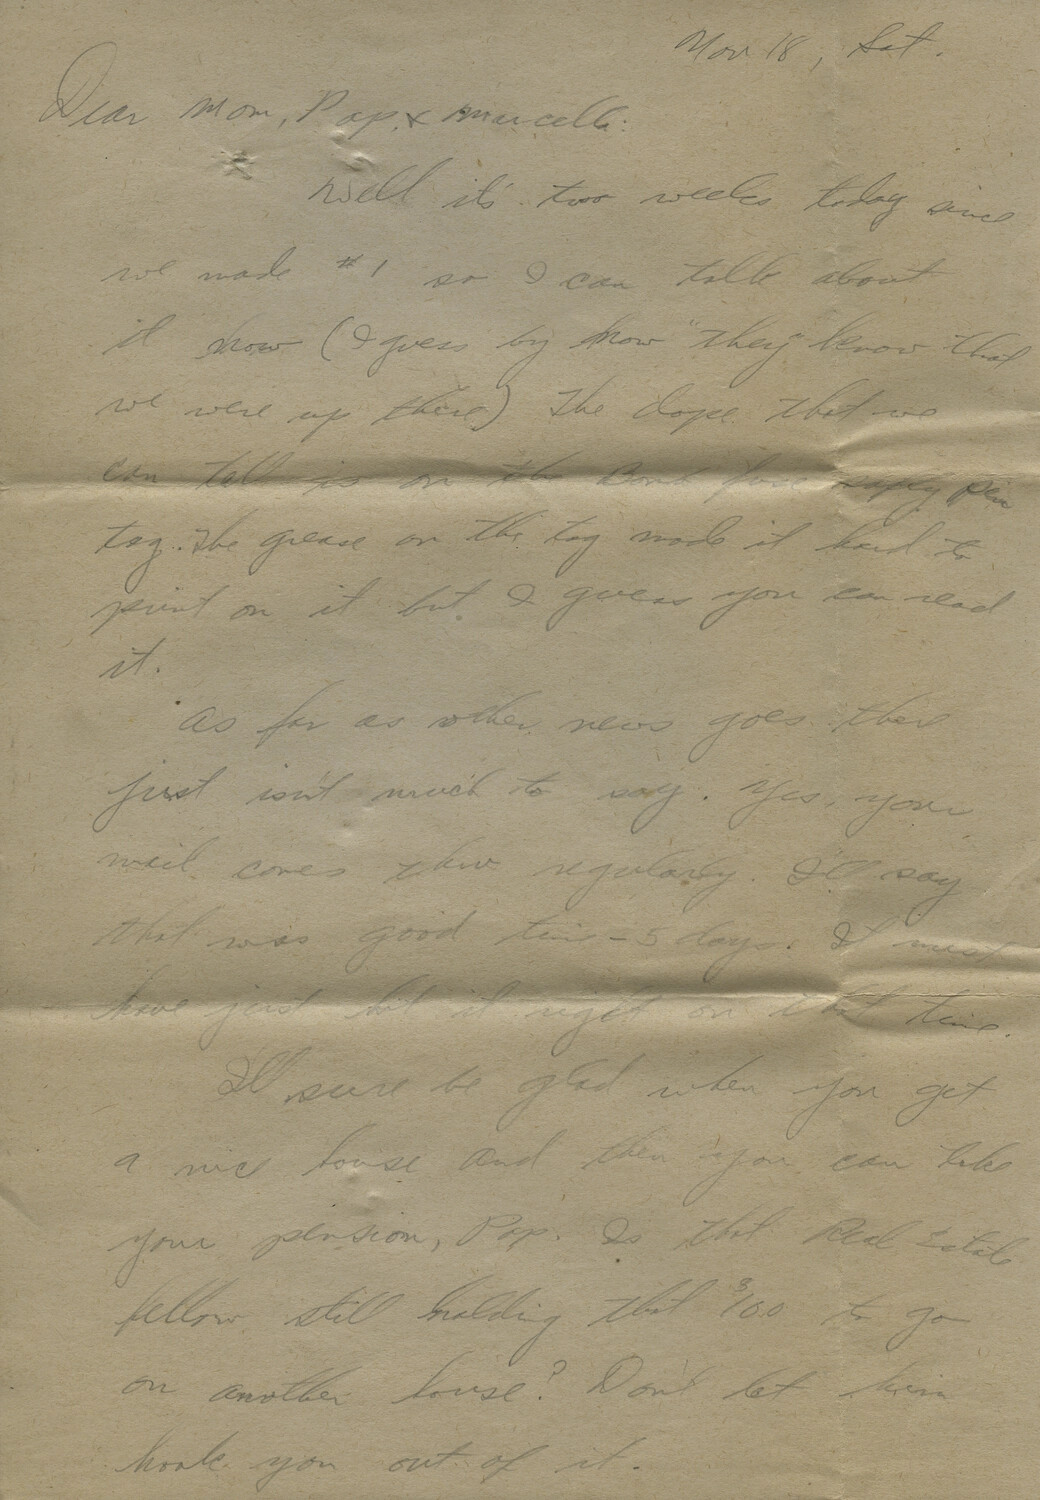 Nov 18, Sat.
Dear Mom, Pap, & Marcella:
Well it's two weeks today since
we made #1 so I can talk about
it now (I guess by now "they" know that
we were up there) The dope that we
can tell is on the Bomb fuse safety pin
tag. The grease on the tag made it hard to
print on it but I guess you can read
it.
As far as other news goes there
just isn't much to say. Yes, your
mail comes thru regularly. I'll say
that was good time - 5 days. It must
have just hit it right on that time.
I'll sure be glad when you get
a nice house and then you can take
your pension, Pap. Is that Real Estate
fellow still holding that $100 to go
on another house? Don't let him
hook you out of it.